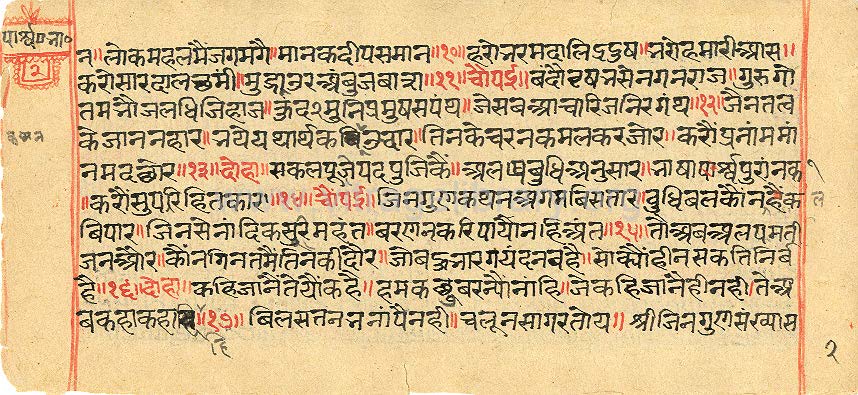 पार्श्व०ना०
२
न॥लोकमहलमैजगमगै॥मानकदीपसमान॥१०॥हरोनरमदालिद्रदुष॥नरोहमारीआस॥
करोसारदालछमी॥मुद्राउरअंबुजबास॥११॥चौपई॥बंदौवृषनसेनगनराज॥गुरुगो
तमनौजलधिजिहाज॥कुंदकुंदमुनिप्रमुषसपंथ॥जेसबआचारिजनिरगंथ॥१२॥जैनतत्व
केजाननहार॥नयेयथार्थक उचार॥तिनकेचरनकमलकरजोर॥करौंप्रनाममां
नमदछोर॥१३॥दोहा॥सकलपूजेपदपूजिकै॥अलपबुधिअनुसार॥नाषापार्श्वपुरांनक
॥करौंसुपरिहितकारा॥१४॥चौपई॥जिनगुणकथनअगमबिसतार॥बुधिबलकौंनहैक
बिपार॥जिनसेनादिकसुरिमहंत॥बरणनकरिपायौनहिअंत॥१५॥तौअबअलपमती
जनऔर॥कौंनगिनतमैतिनकीदौर॥जोबहुनारगयंदनबहै॥सोक्यौंहीनसकतिनिब
है॥१६॥दोहा॥कहिजानैतेयौंकहै॥हमकछुबरन्यौंनाहि॥जेकहिजांनेहीनही॥तेअ
बकहाकहा ॥१७॥बिलसतननननांपेनही॥चलूनसागरतोय॥श्रीजिनगुणसंख्यास
२